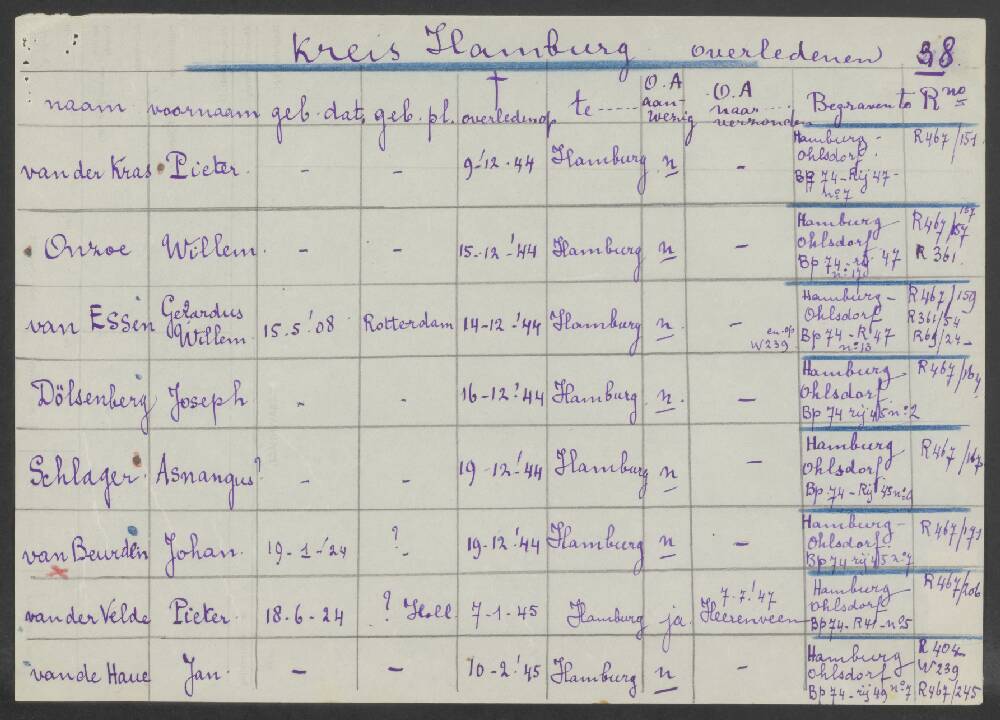 Kreis Hamburg overledenen 38.
naam voornaam geb. dat. geb. pl. † overleden op te ...... O.A aan-wezig O.A naar ..... verzonden Begraven to R no
van der Kras Pieter. - - 9-12-44 Hamburg n - Hamburg - Ohlsdorf. Bp 74 - Rij 47 - no 7 R467/151
Onzoe Willem. - - 15-12-'44 Hamburg n - Hamburg Ohlsdorf Bp 74 - rij 47 R467/157 R 361.
van Essen Gerardus Willem. 15.5.'08 Rotterdam 14-12-'44 Hamburg n. - en op W239 Hamburg - Ohlsdorf Bp 74 - R 47 no 13 R467/159 R361/54 R69/24-
Dölsenberg Joseph - - 16-12-'44 Hamburg n. - Hamburg Ohlsdorf. Bp 74 rij 45 no 2 R467/164
Schlager. Asnangus? - - 19-12-'44 Hamburg n - Hamburg Ohlsdorf Bp. 74 - Rij 45 no R467/167
van Beurden Johan. 19-1-'24 ? - 19-12-'44 Hamburg n - Hamburg - Ohlsdorf. Bp 74 rij 45 no 7 R467/171
van der Velde Pieter. 18.6-24 ? Holl 7-1-45 Hamburg ja. 7-7-'47 Heerenveen Hamburg Ohlsdorf Bp 74 - R 41 - no 5 R467/206
van de Haue Jan. - - 10-2-'45 Hamburg n - Hamburg Ohlsdorf Bp 74 - rij 49 no 7 R 404 W239 R467/245